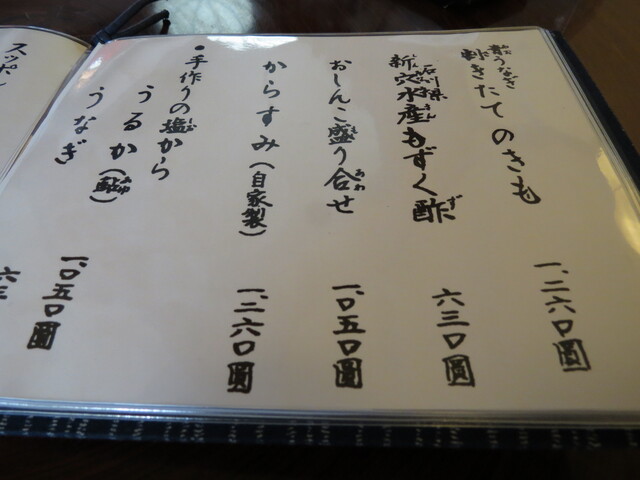 割きたてのきも
一、二六〇圓
石川県
新穴水産もずく酢
六三〇圓
おしんこ盛り合せ
一、〇五〇圓
からすみ（自家製）
一、二六〇圓
●手作りの塩から
うるか（鮎）
うなぎ
一、〇五〇圓
スッポン